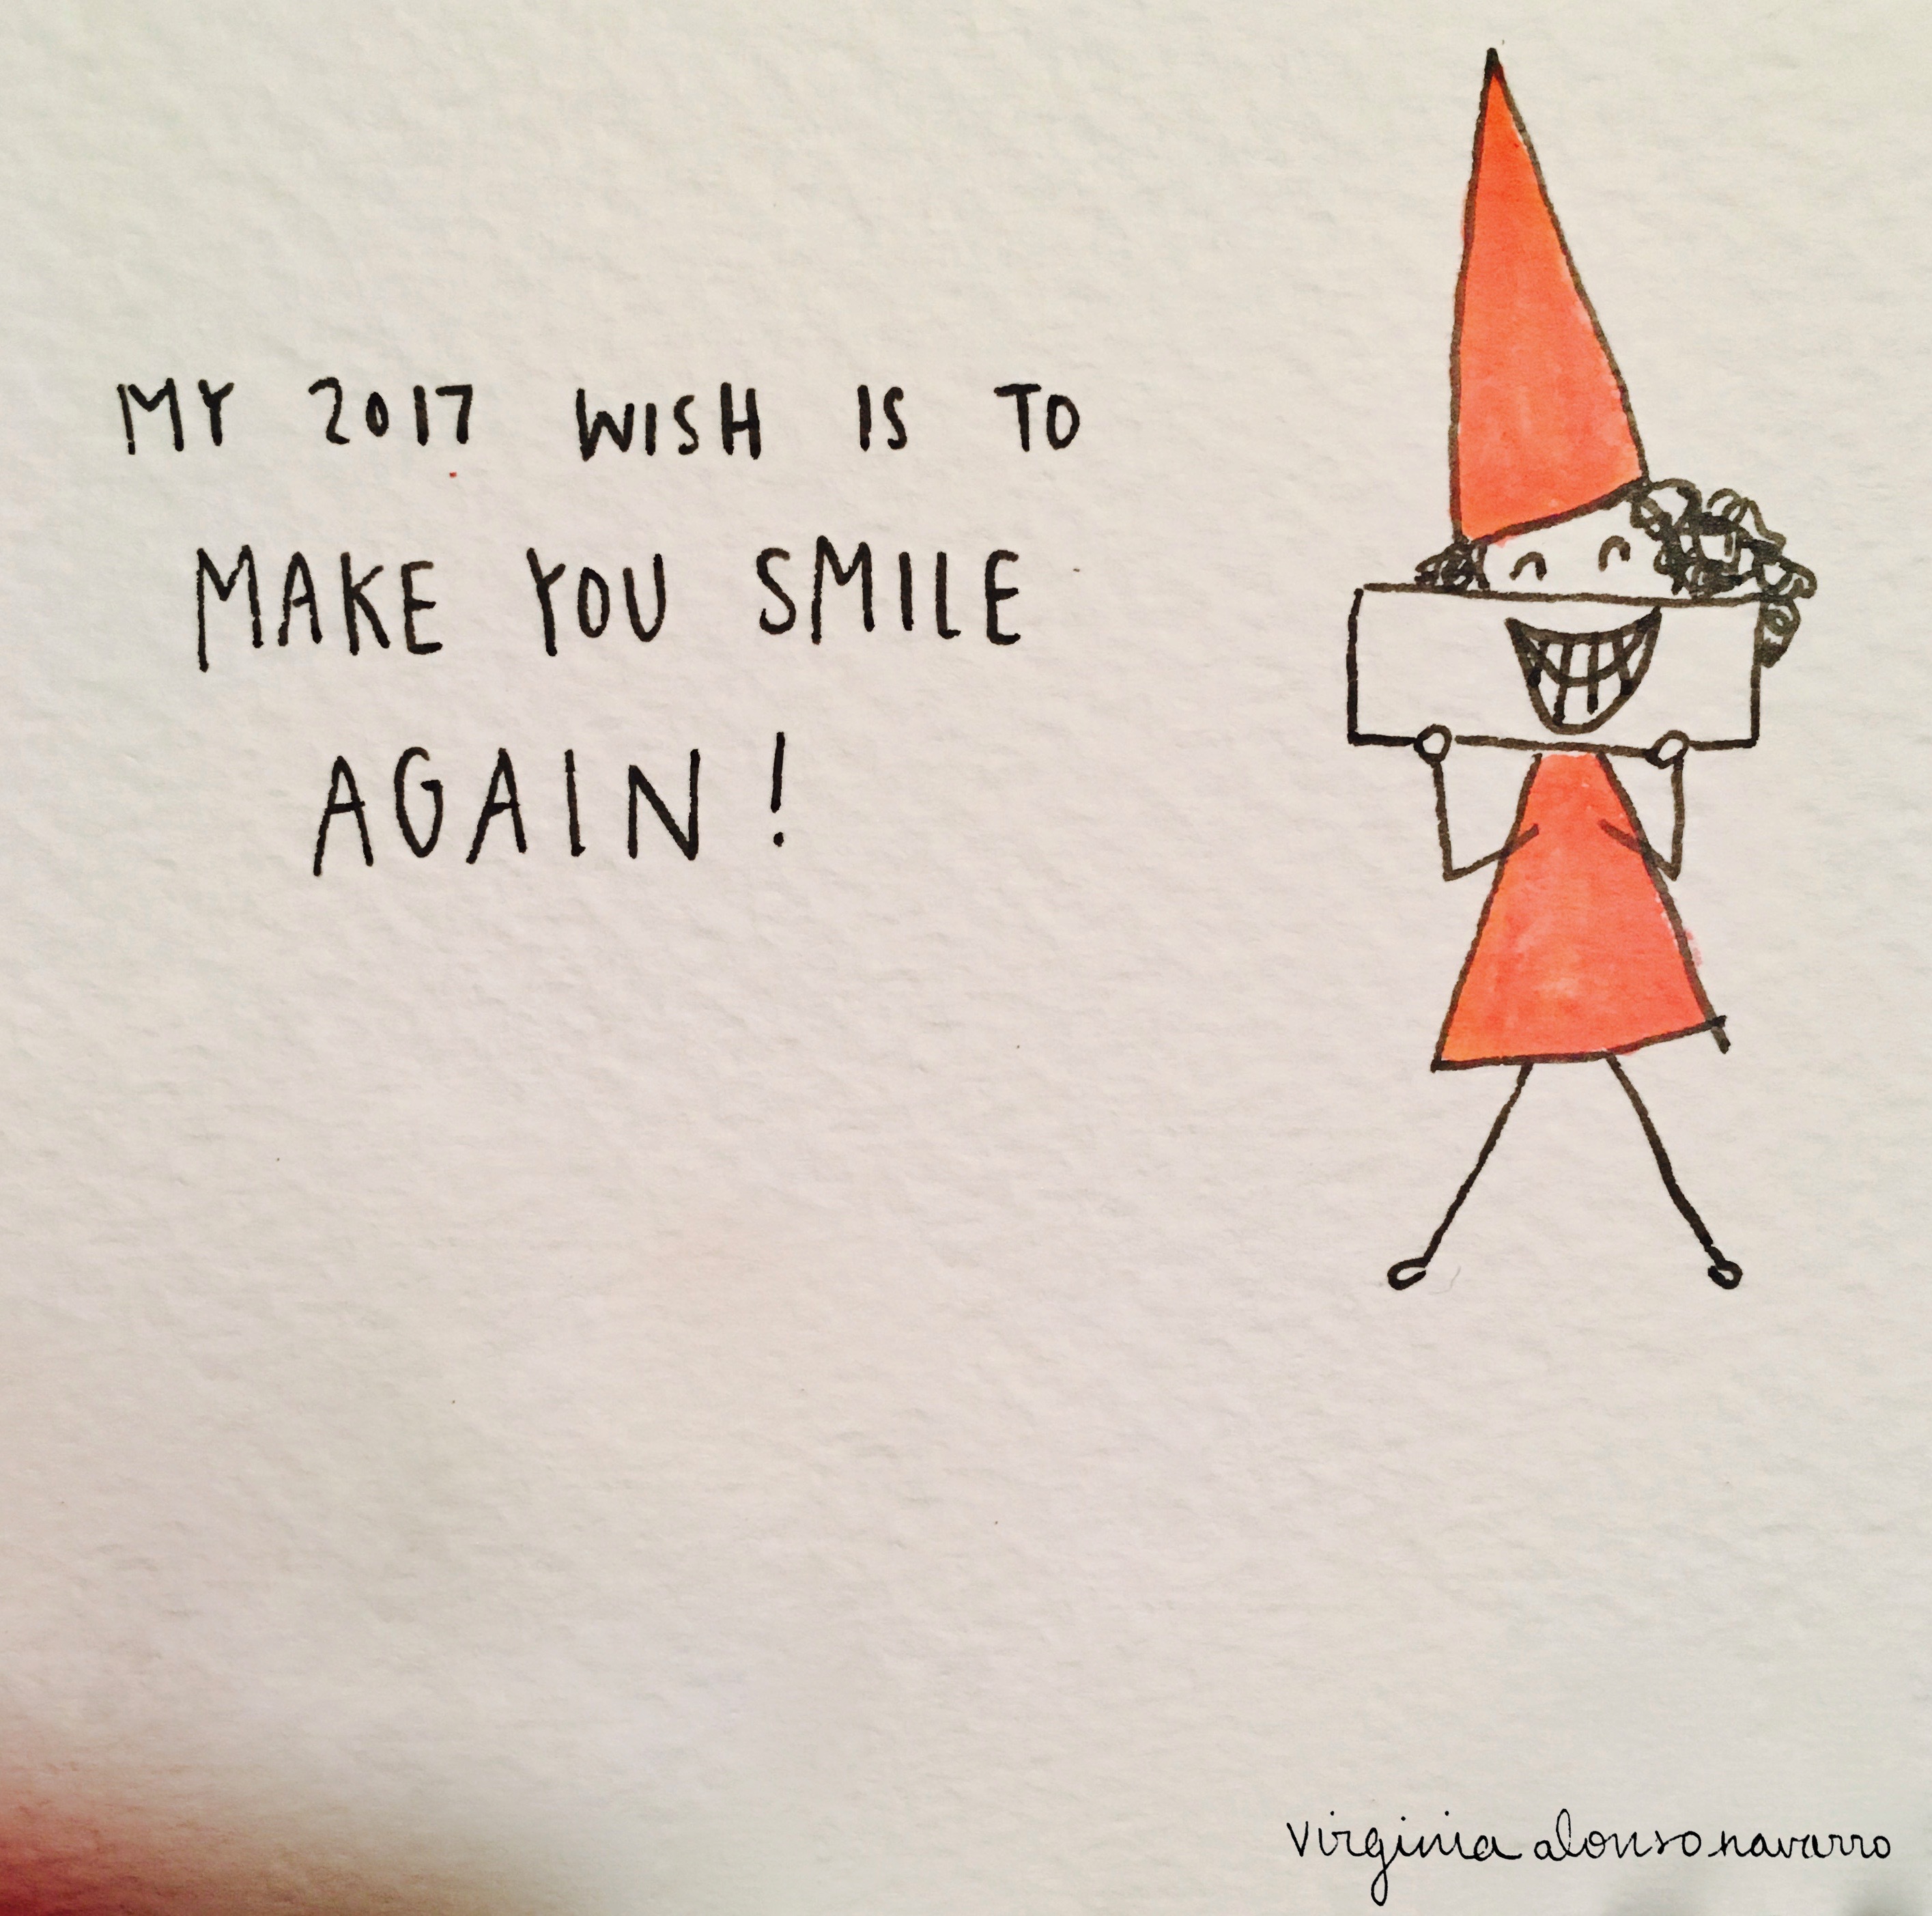 MY 2017 WISH IS TO
MAKE YOU SMILE
AGAIN!
virginia alonso navarro